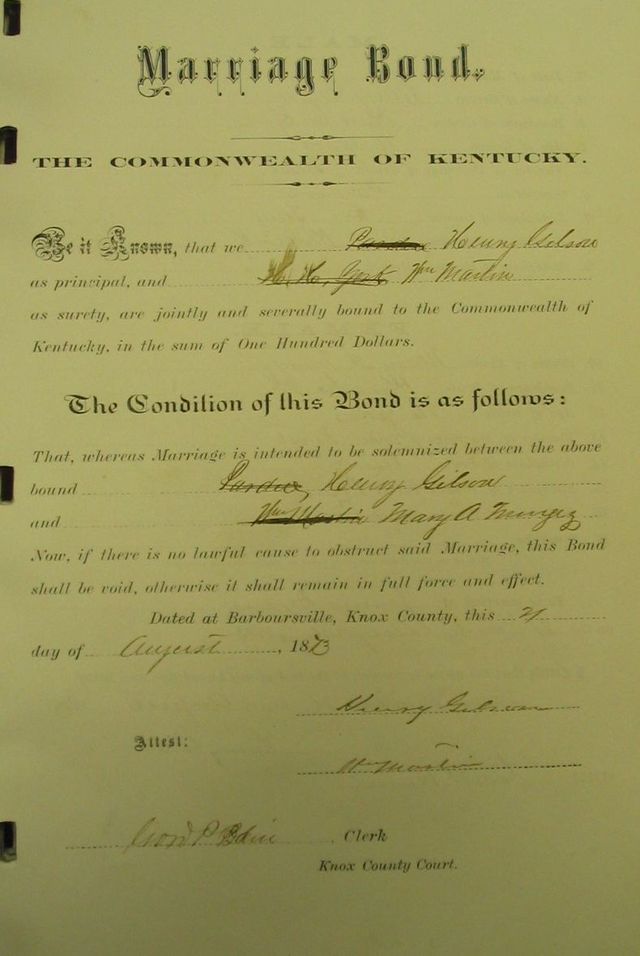 Marriage Bond.
THE COMMONWEALTH OF KENTUCKY.
Be it Known, that we Henry Gilson
as principal, and H. H. York Wm Martin
as surety, are jointly and severally bound to the Commonwealth of
Kentucky, in the sum of One Hundred Dollars.
The Condition of this Bond is as follows:
That, whereas Marriage is intended to be solemnized between the above
bound Henry Gilson
and Wm Martin Mary A
Now, if there is no lawful cause to obstruct said Marriage, this Bond
shall be void, otherwise it shall remain in full force and effect.
Dated at Barboursville, Knox County, this 21
day of August, 1873
Henry Gilson
Attest:
Wm Martin
Clerk
Knox County Court.